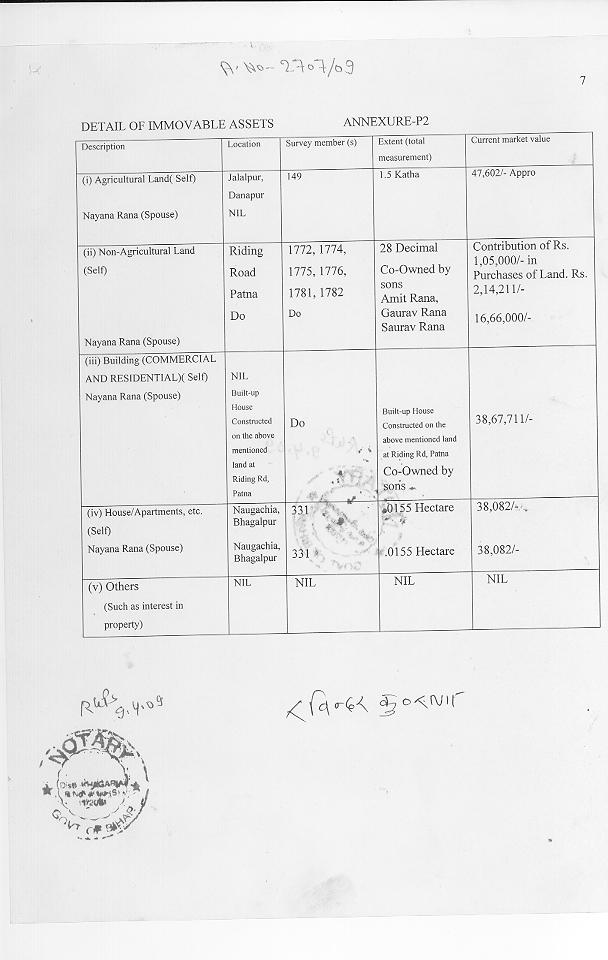 A. No- 2707/09
7
DETAIL OF IMMOVABLE ASSETS ANNEXURE-P2
Description
Location
Survey member (s)
Extent (total
measurement)
Current market value
(i) Agricultural Land( Self)
Nayana Rana (Spouse)
Jalalpur,
Danapur
NIL
149
1.5 Katha
47,602/- Appro
(ii) Non-Agricultural Land
(Self)
Nayana Rana (Spouse)
Riding
Road
Patna
Do
1772, 1774,
1775, 1776,
1781, 1782
Do
28 Decimal
Co-Owned by
sons
Amit Rana,
Gaurav Rana
Saurav Rana
Contribution of Rs.
1,05,000/- in
Purchases of Land. Rs.
2,14,211/-
16,66,000/-
(iii) Building (COMMERCIAL
AND RESIDENTIAL)( Self)
Nayana Rana (Spouse)
NIL
Built-up
House
Constructed
on the above
mentioned
land at
Riding Rd,
Patna
Do
Built-up House
Constructed on the
above mentioned land
at Riding Rd, Patna
Co-Owned by
sons
38,67,711/-
(iv) House/Apartments, etc.
(Self)
Nayana Rana (Spouse)
Naugachia,
Bhagalpur
Naugachia,
Bhagalpur
331
331
.0155 Hectare
.0155 Hectare
38,082/-
38,082/-
(v) Others
(Such as interest in
property)
NIL
NIL
NIL
NIL
9.4.09
NOTARY
KHAGARIA
GOVT OF BIHAR